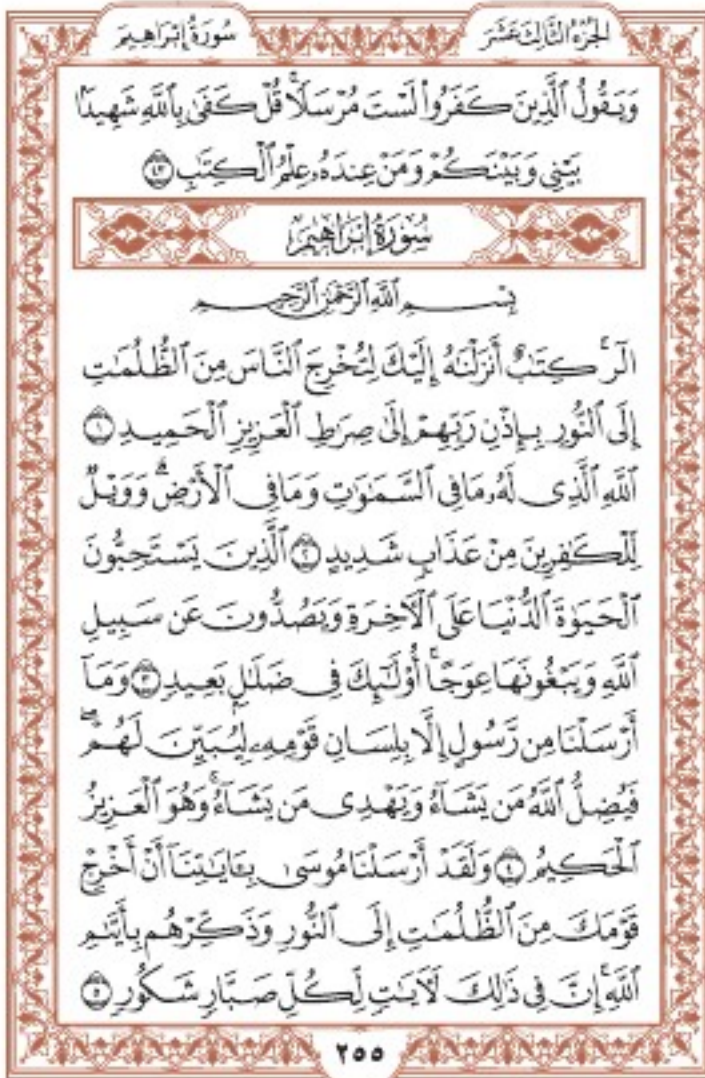 الجزء الثالث عشر
سورة إبراهيم
وَيَقُولُ ٱلَّذِينَ كَفَرُوا۟ لَسْتَ مُرْسَلًاۚ قُلْ كَفَىٰ بِٱللَّهِ شَهِيدًۢا
بَيْنِى وَبَيْنَكُمْ وَمَنْ عِندَهُۥ عِلْمُ ٱلْكِتَٰبِ ٤٣
سُورَةُ إِبْرَاهِيمَ
بِسْمِ ٱللَّهِ ٱلرَّحْمَٰنِ ٱلرَّحِيمِ
الٓرۚ كِتَٰبٌ أَنزَلْنَٰهُ إِلَيْكَ لِتُخْرِجَ ٱلنَّاسَ مِنَ ٱلظُّلُمَٰتِ
إِلَى ٱلنُّورِ بِإِذْنِ رَبِّهِمْ إِلَىٰ صِرَٰطِ ٱلْعَزِيزِ ٱلْحَمِيدِ ١
ٱللَّهِ ٱلَّذِى لَهُۥ مَا فِى ٱلسَّمَٰوَٰتِ وَمَا فِى ٱلْأَرْضِۗ وَوَيْلٌ
لِّلْكَٰفِرِينَ مِنْ عَذَابٍ شَدِيدٍ ٢ ٱلَّذِينَ يَسْتَحِبُّونَ
ٱلْحَيَوٰةَ ٱلدُّنْيَا عَلَى ٱلْأَخِرَةِ وَيَصُدُّونَ عَن سَبِيلِ
ٱللَّهِ وَيَبْغُونَهَا عِوَجًاۚ أُو۟لَٰٓئِكَ فِى ضَلَٰلٍۭ بَعِيدٍ ٣ وَمَآ
أَرْسَلْنَا مِن رَّسُولٍ إِلَّا بِلِسَانِ قَوْمِهِۦ لِيُبَيِّنَ لَهُمْۖ
فَيُضِلُّ ٱللَّهُ مَن يَشَآءُ وَيَهْدِى مَن يَشَآءُۚ وَهُوَ ٱلْعَزِيزُ
ٱلْحَكِيمُ ٤ وَلَقَدْ أَرْسَلْنَا مُوسَىٰ بِـَٔايَٰتِنَآ أَنْ أَخْرِجْ
قَوْمَكَ مِنَ ٱلظُّلُمَٰتِ إِلَى ٱلنُّورِ وَذَكِّرْهُم بِأَيَّىٰمِ
ٱللَّهِۚ إِنَّ فِى ذَٰلِكَ لَـَٔايَٰتٍ لِّكُلِّ صَبَّارٍ شَكُورٍ ٥
٢٥٥